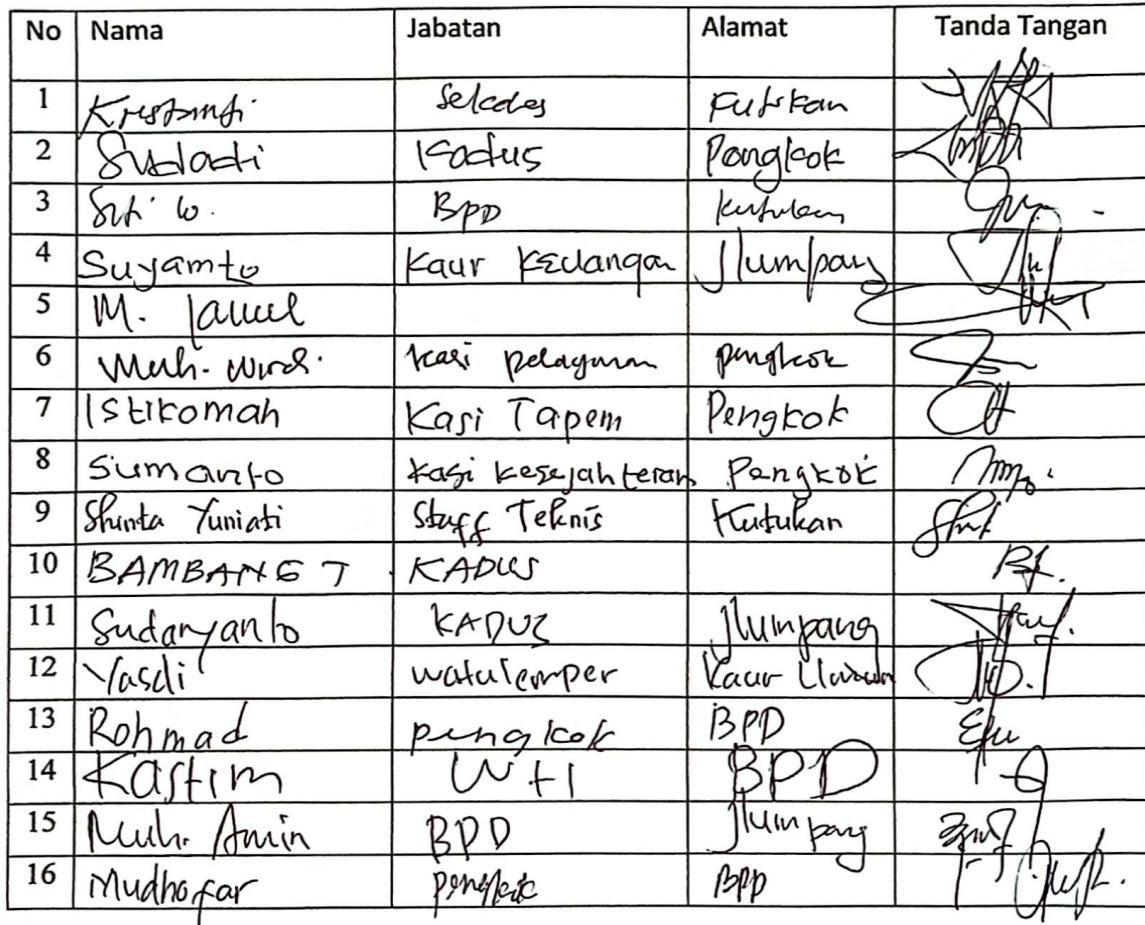 No Nama Jabatan Alamat Tanda Tangan
1 Kristanti Sekdes Kutukan
2 Sudadi Kadus Pangkok
3 Siti W. BPD Kutukan
4 Suyamto Kaur Keuangan Jlumpang
5 M. Jamil
6 Muh. Kasi pelayanan pengkok
7 Istikomah Kasi Tapem Pengkok
8 Sumanto Kasi Kesejahteran Pengkok
9 Shinta Yuniati Staff Teknis Kutukan
10 BAMBANG T KADUS
11 Sudaryanto KADUS Jlumpang
12 Yasdi watulemper Kaur
13 Rohmad pengkok BPD
14 Kastim BPD
15 Muh. Amin BPD Jlumpang
16 Mudhofar pengkok BPD